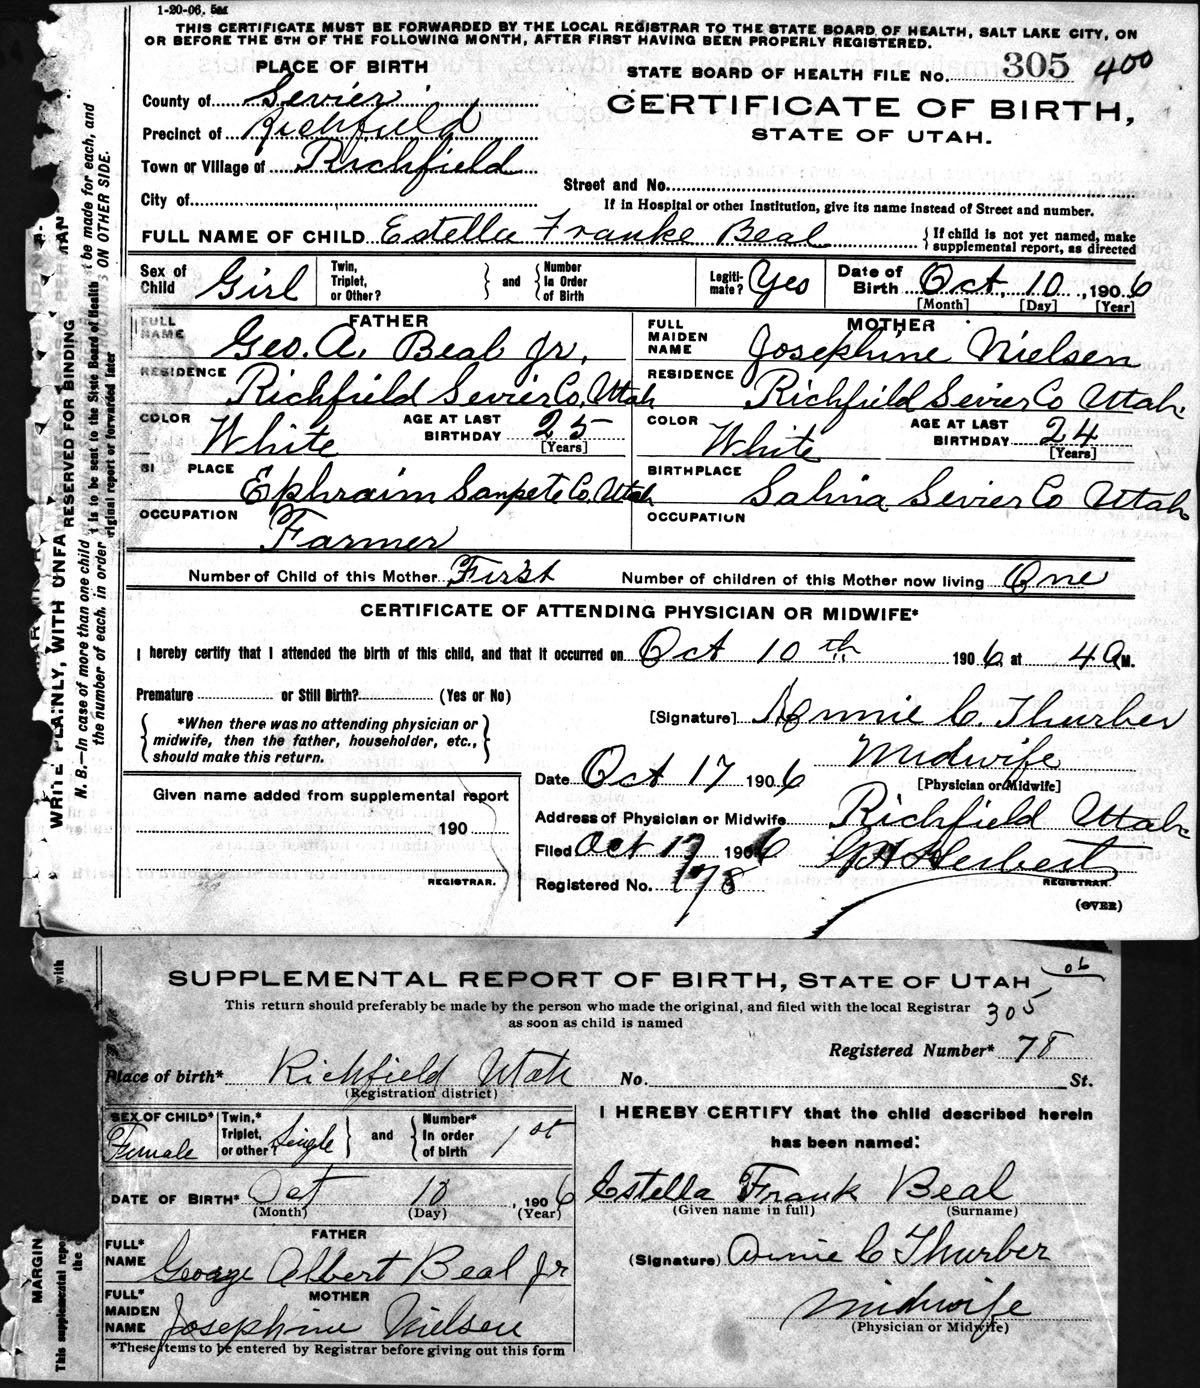 1-20-06. 5M
THIS CERTIFICATE MUST BE FORWARDED BY THE LOCAL REGISTRAR TO THE STATE BOARD OF HEALTH, SALT LAKE CITY, ON
OR BEFORE THE 5TH OF THE FOLLOWING MONTH, AFTER FIRST HAVING BEEN PROPERLY REGISTERED.
PLACE OF BIRTH
County of Sevier
Precinct of Richfield
Town or Village of Richfield
City of
STATE BOARD OF HEALTH FILE No. 305 400
CERTIFICATE OF BIRTH,
STATE OF UTAH.
Street and No.
If in Hospital or other Institution, give its name instead of Street and number.
FULL NAME OF CHILD Estella Franke Beal { If child is not yet named, make supplemental report, as directed
Sex of Child Girl Twin, Triplet, or Other? } and { Number in Order of Birth Legiti-mate? Yes Date of Birth Oct. 10, 1906
[Month] [Day] [Year]
FATHER
FULL NAME Geo. A. Beal Jr.
RESIDENCE Richfield Sevier Co, Utah
COLOR White AGE AT LAST BIRTHDAY 25 [Years]
BI PLACE Ephraim Sanpete Co, Utah
OCCUPATION Farmer
MOTHER
FULL MAIDEN NAME Josephine Nielsen
RESIDENCE Richfield Sevier Co Utah
COLOR White AGE AT LAST BIRTHDAY 24 [Years]
BIRTHPLACE Salina Sevier Co Utah
OCCUPATION
Number of Child of this Mother First Number of children of this Mother now living One
CERTIFICATE OF ATTENDING PHYSICIAN OR MIDWIFE*
I hereby certify that I attended the birth of this child, and that it occurred on Oct 10th 1906, at 4 A M.
Premature or Still Birth? (Yes or No)
{ *When there was no attending physician or
midwife, then the father, householder, etc.,
should make this return. }
[Signature] Annie C. Thurber
Midwife
[Physician or Midwife]
Date Oct 17 1906
Address of Physician or Midwife Richfield Utah
Filed Oct 17 1906 Herbert
REGISTRAR.
Registered No. 178
(OVER)
Given name added from supplemental report
190
REGISTRAR.
WRITE PLAINLY, WITH UNFA
RESERVED FOR BINDING
N. B.—In case of more than one child
the number of each, in order
t be made for each, and
ON OTHER SIDE.
t is to be sent to the State Board of Health
riginal report or forwarded later
SUPPLEMENTAL REPORT OF BIRTH, STATE OF UTAH
06
This return should preferably be made by the person who made the original, and filed with the local Registrar
as soon as child is named
305
Registered Number* 78
Place of birth* Richfield Utah No. St.
(Registration district)
SEX OF CHILD* Female Twin,* Triplet, or other? Single } and { Number* in order of birth 1st
DATE OF BIRTH* Oct 10, 1906
(Month) (Day) (Year)
FATHER
FULL* NAME George Albert Beal Jr
MOTHER
FULL* MAIDEN NAME Josephine Nielsen
*These items to be entered by Registrar before giving out this form
I HEREBY CERTIFY that the child described herein
has been named:
Estella Frank Beal
(Given name in full) (Surname)
(Signature) Annie C Thurber
Midwife
(Physician or Midwife)
MARGIN
This supplemental repor
with